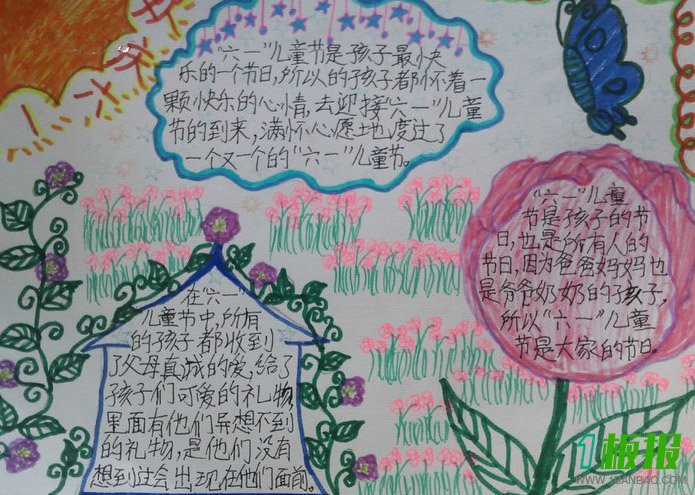 "六一"儿童节是孩子最快
乐的一个节日,所以的孩子都怀着一
颗快乐的心情,去迎接"六一"儿童
节的到来,满怀心愿地度过了
一个又一个的"六一"儿童节。
"六一"儿童
节是孩子的节
日,也是所有人的
节日,因为爸爸妈妈也
是爷爷奶奶的孩子,
所以"六一"儿童
节是大家的节日。
在"六一"
儿童节中,所有
的孩子都收到
了父母真城的爱,给了
孩子们可爱的礼物,
里面有他们异想不到
的礼物,是他们没有
想到这会出现在他们面前。
1板报
WWW.1BANBAO.COM